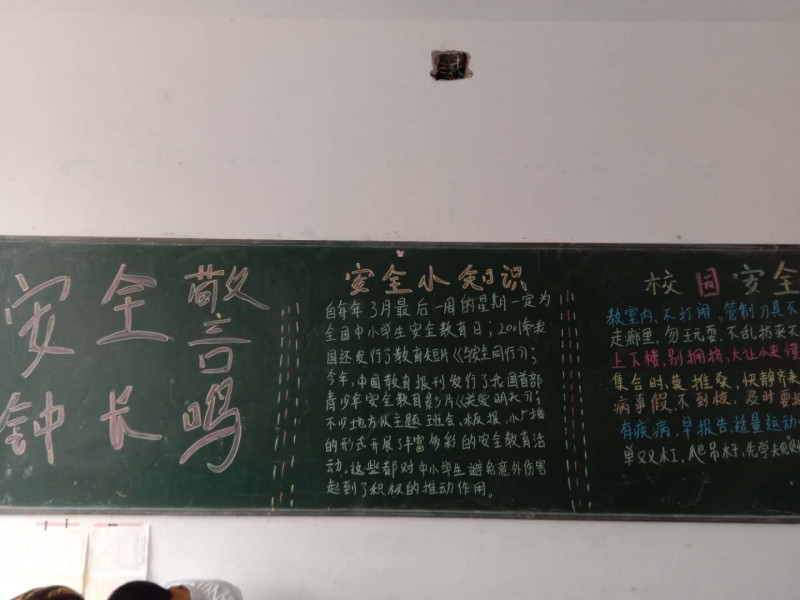 安全警
钟长鸣
安全小知识
自每年3月最后一周的星期一定为
全国中小学生安全教育日；2001年我
国还发行了教育短片《与安全同行》；
今年，中国教育报刊发行了我国首部
青少年安全教育影片《关爱明天》；
不少地方从主题班会、板报、小广播
的形式开展了丰富多彩的安全教育活
动。这些都对中小学生避免意外伤害
起到了积极的推动作用。
校园安全
教室内，不打闹，管制刀具不
走廊里，勿玩耍，不乱抛来不
上下楼，别拥挤，大让小来
集合时，莫推搡，快静齐来
病事假，不到校，及时要
有疾病，早报告，适量运动
单双杠、爬吊杆，先学